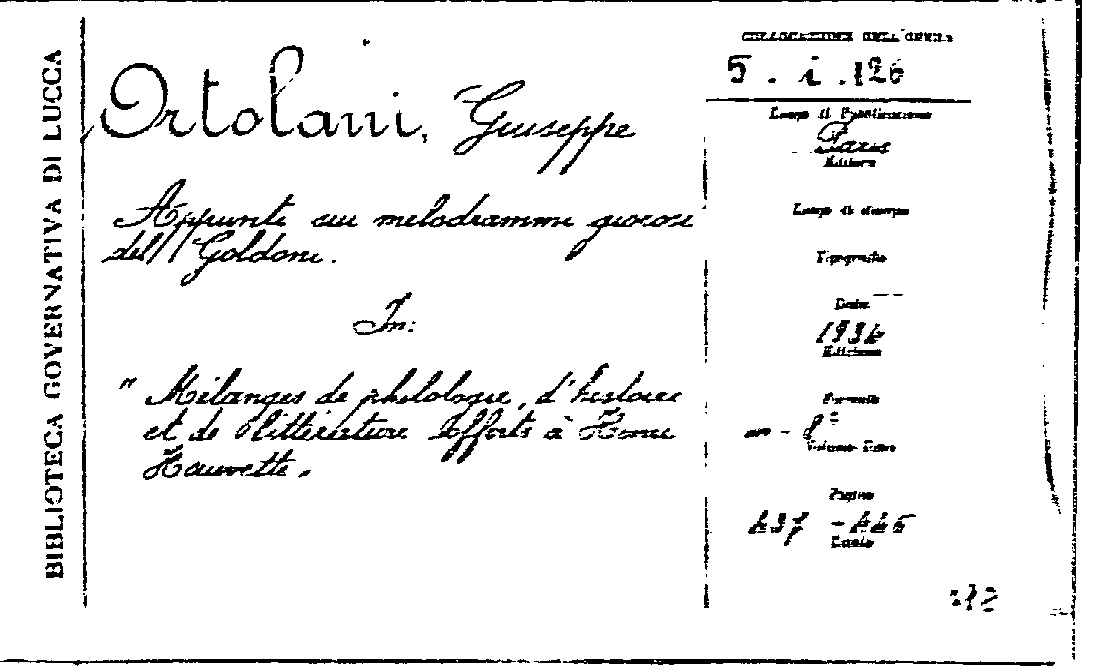 BIBLIOTECA GOVERNATIVA DI LUCCA
Ortolani, Giuseppe
Appunti sui melodrammi giocosi
del Goldoni.
In:
" Mélanges de philologie, d'histoire
et de littérature offerts à Henri
Hauvette.
COLLOCAZIONE DELL'OPERA
5 . i . 126
Luogo di Pubblicazione
Paris
Editore
Luogo di stampa
Tipografia
Data
1934
Edizione
Formato
in - 8°
Pagine
437 - 445